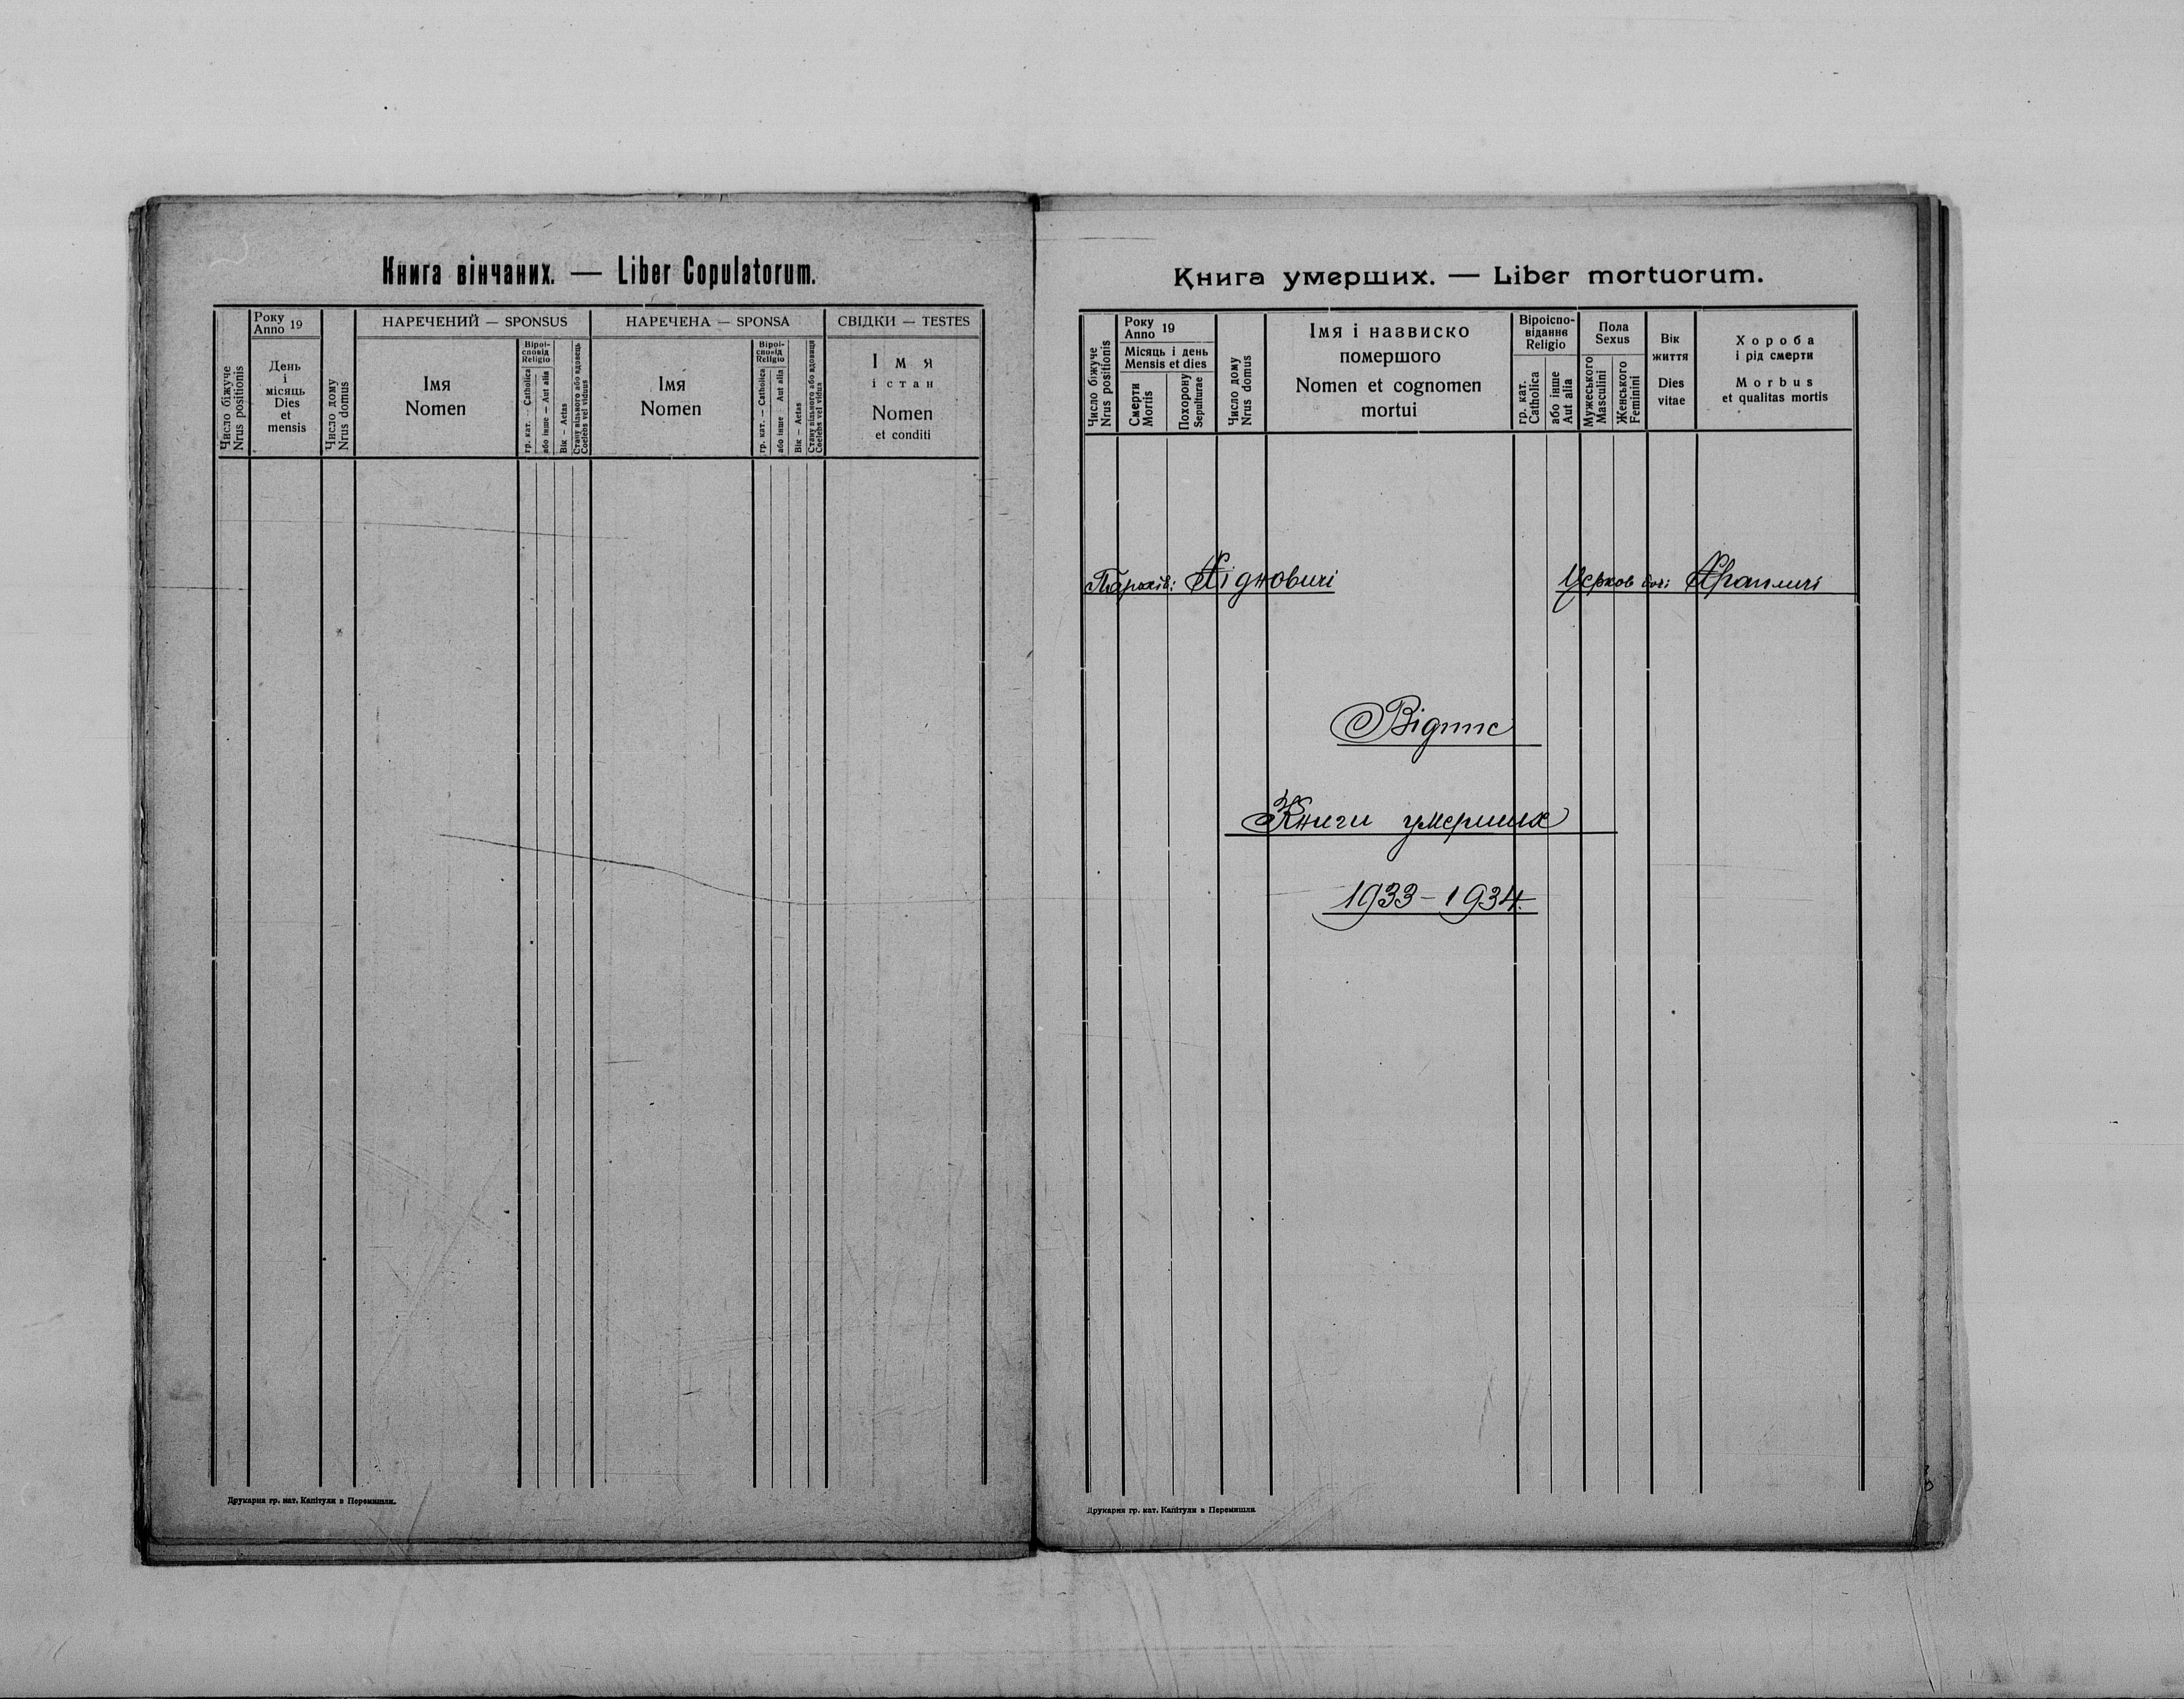 Книга вінчаних. — Liber Copulatorum.
Число біжуче
Nrus positionis
Року
Anno 19
День
і
місяць
Dies
et
mensis
Число дому
Nrus domus
НАРЕЧЕНИЙ — SPONSUS
Імя
Nomen
Віроі-
сповід
Religio
гр. кат. — Catholica
або інше — Aut alia
Вік — Aetas
Стану вільного або вдовець
Coelebs vel viduus
НАРЕЧЕНА — SPONSA
Імя
Nomen
Віроі-
сповід
Religio
гр. кат. — Catholica
або інше Aut alia
Вік — Aetas
Стану вільного або вдовиця
Coelebs vel vidua
СВІДКИ — TESTES
Імя
і стан
Nomen
et conditi
Друкарня гр. кат. Капітули в Перемишли.
Книга умерших. — Liber mortuorum.
Число біжуче
Nrus positionis
Року
Anno 19
Місяць і день
Mensis et dies
Смерти
Mortis
Похорону
Sepulturae
Число дому
Nrus domus
Імя і назвиско
помершого
Nomen et cognomen
mortui
Віроіспо-
відання
Religio
гр. кат.
Catholica
або інше
Aut alia
Пола
Sexus
Мужеського
Masculini
Женського
Feminini
Вік
життя
Dies
vitae
Хороба
і рід смерти
Morbus
et qualitas mortis
Відпис
Книги умерших
1933-1934.
Друкарня гр. кат. Капітули в Перемишли